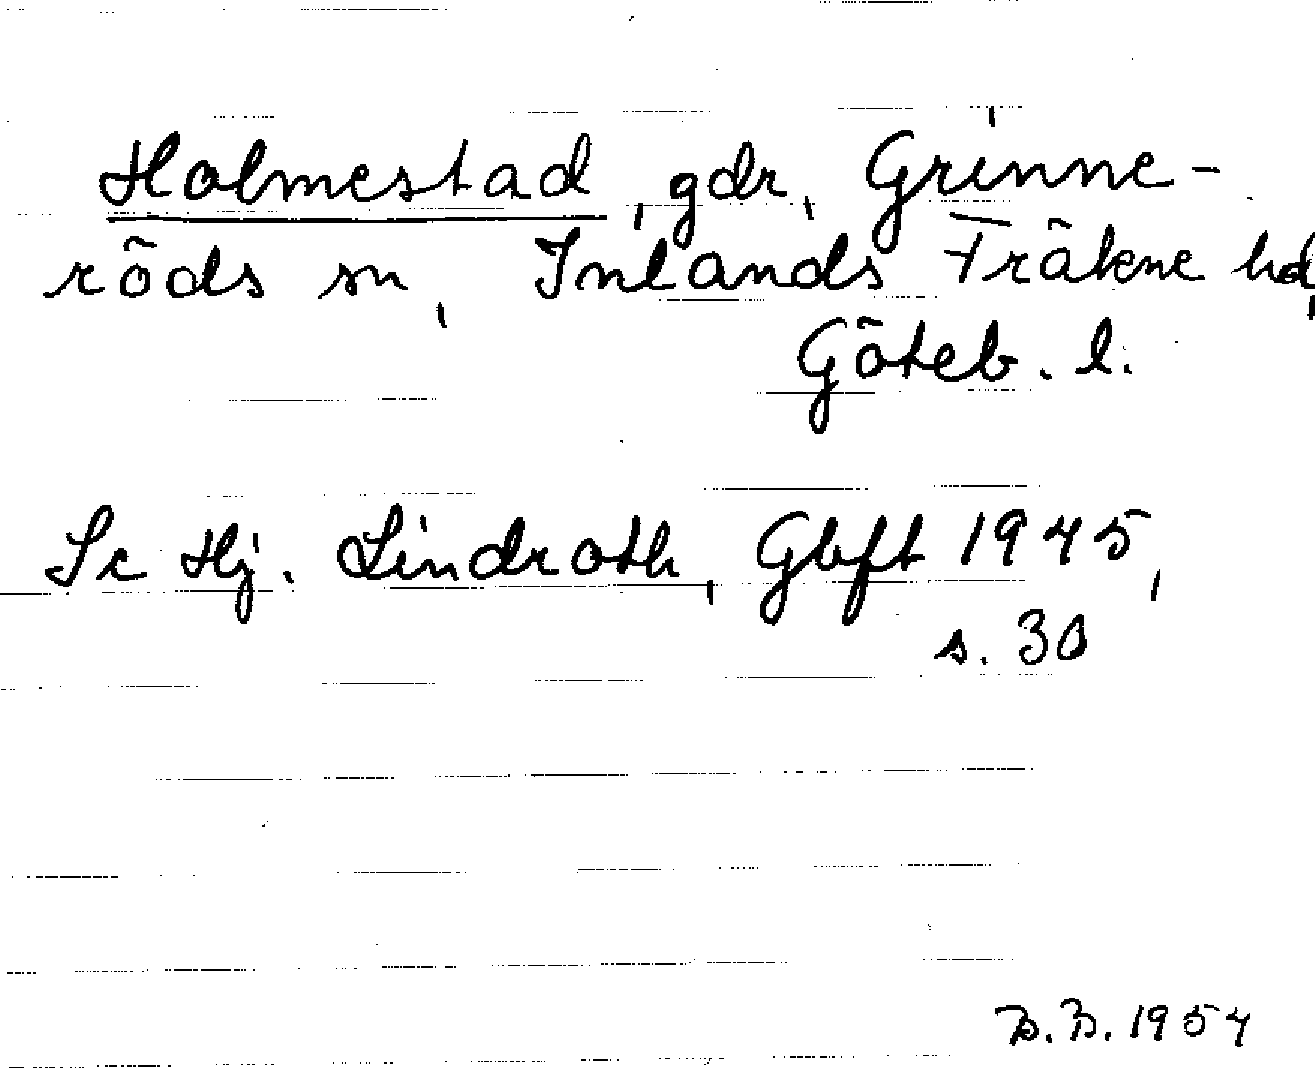 Holmestad, gdr, Grinne-
röds sn, Inlands Fräkne hd,
Göteb. l.
Se Hj. Lindroth, Gbft 1945,
s. 30
B.B. 1954